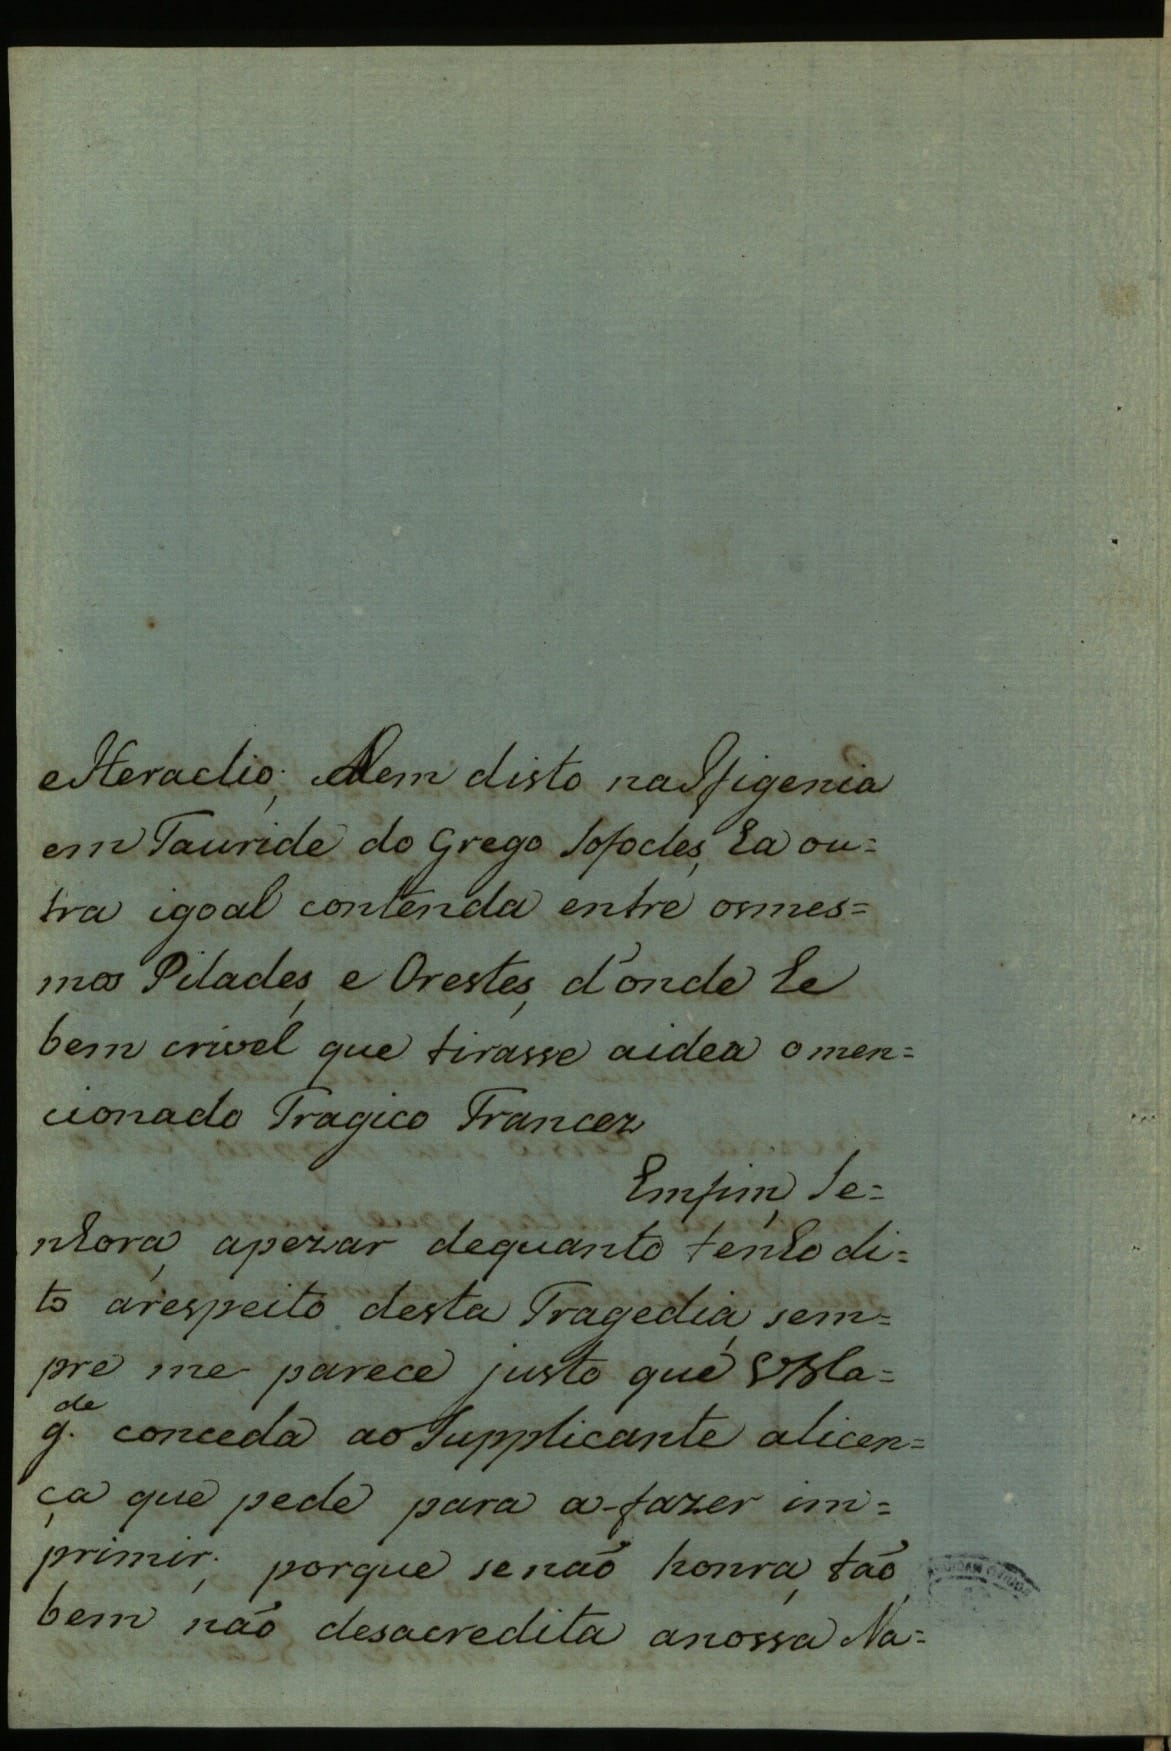 e Heraclio; Alem disto na Ifigenia
em Tauride do Grego Sofocles, ha ou=
tra igoal contenda entre os mes=
mos Pilades, e Orestes, d'onde he
bem crivel que tirasse a idea o men=
cionado Tragico Francez
Emfim, Se=
nhora, apezar de quanto tenho di=
to a respeito desta Tragedia, sem=
pre me parece justo que V Ma=
g.de conceda ao Supplicante a licen=
ça que pede para a-fazer im=
primir; porque se não honra, tão
bem não desacredita a nossa Na=